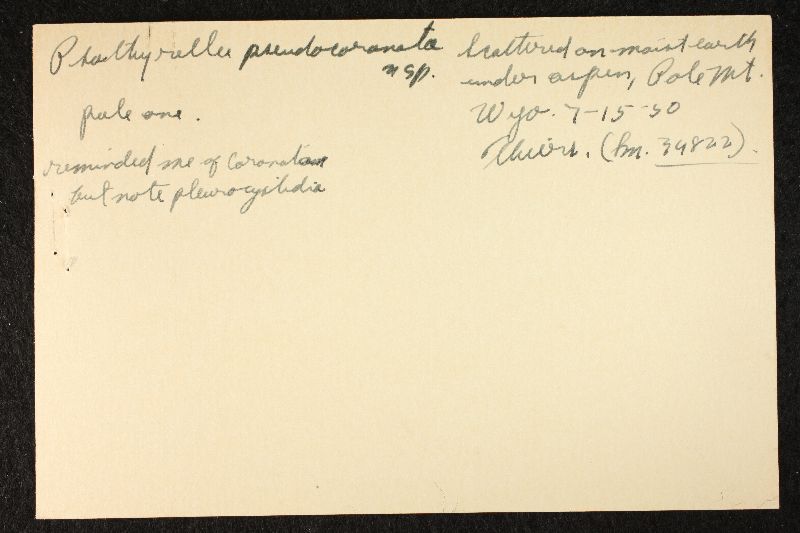 Psathyrella pseudocoronata
n sp.
pale one.
reminded me of coronata
but note pleurocystidia
Scattered on moist earth
under aspen, Pole Mt.
Wyo. 7-15-50
Thiers. (Sm. 34822).